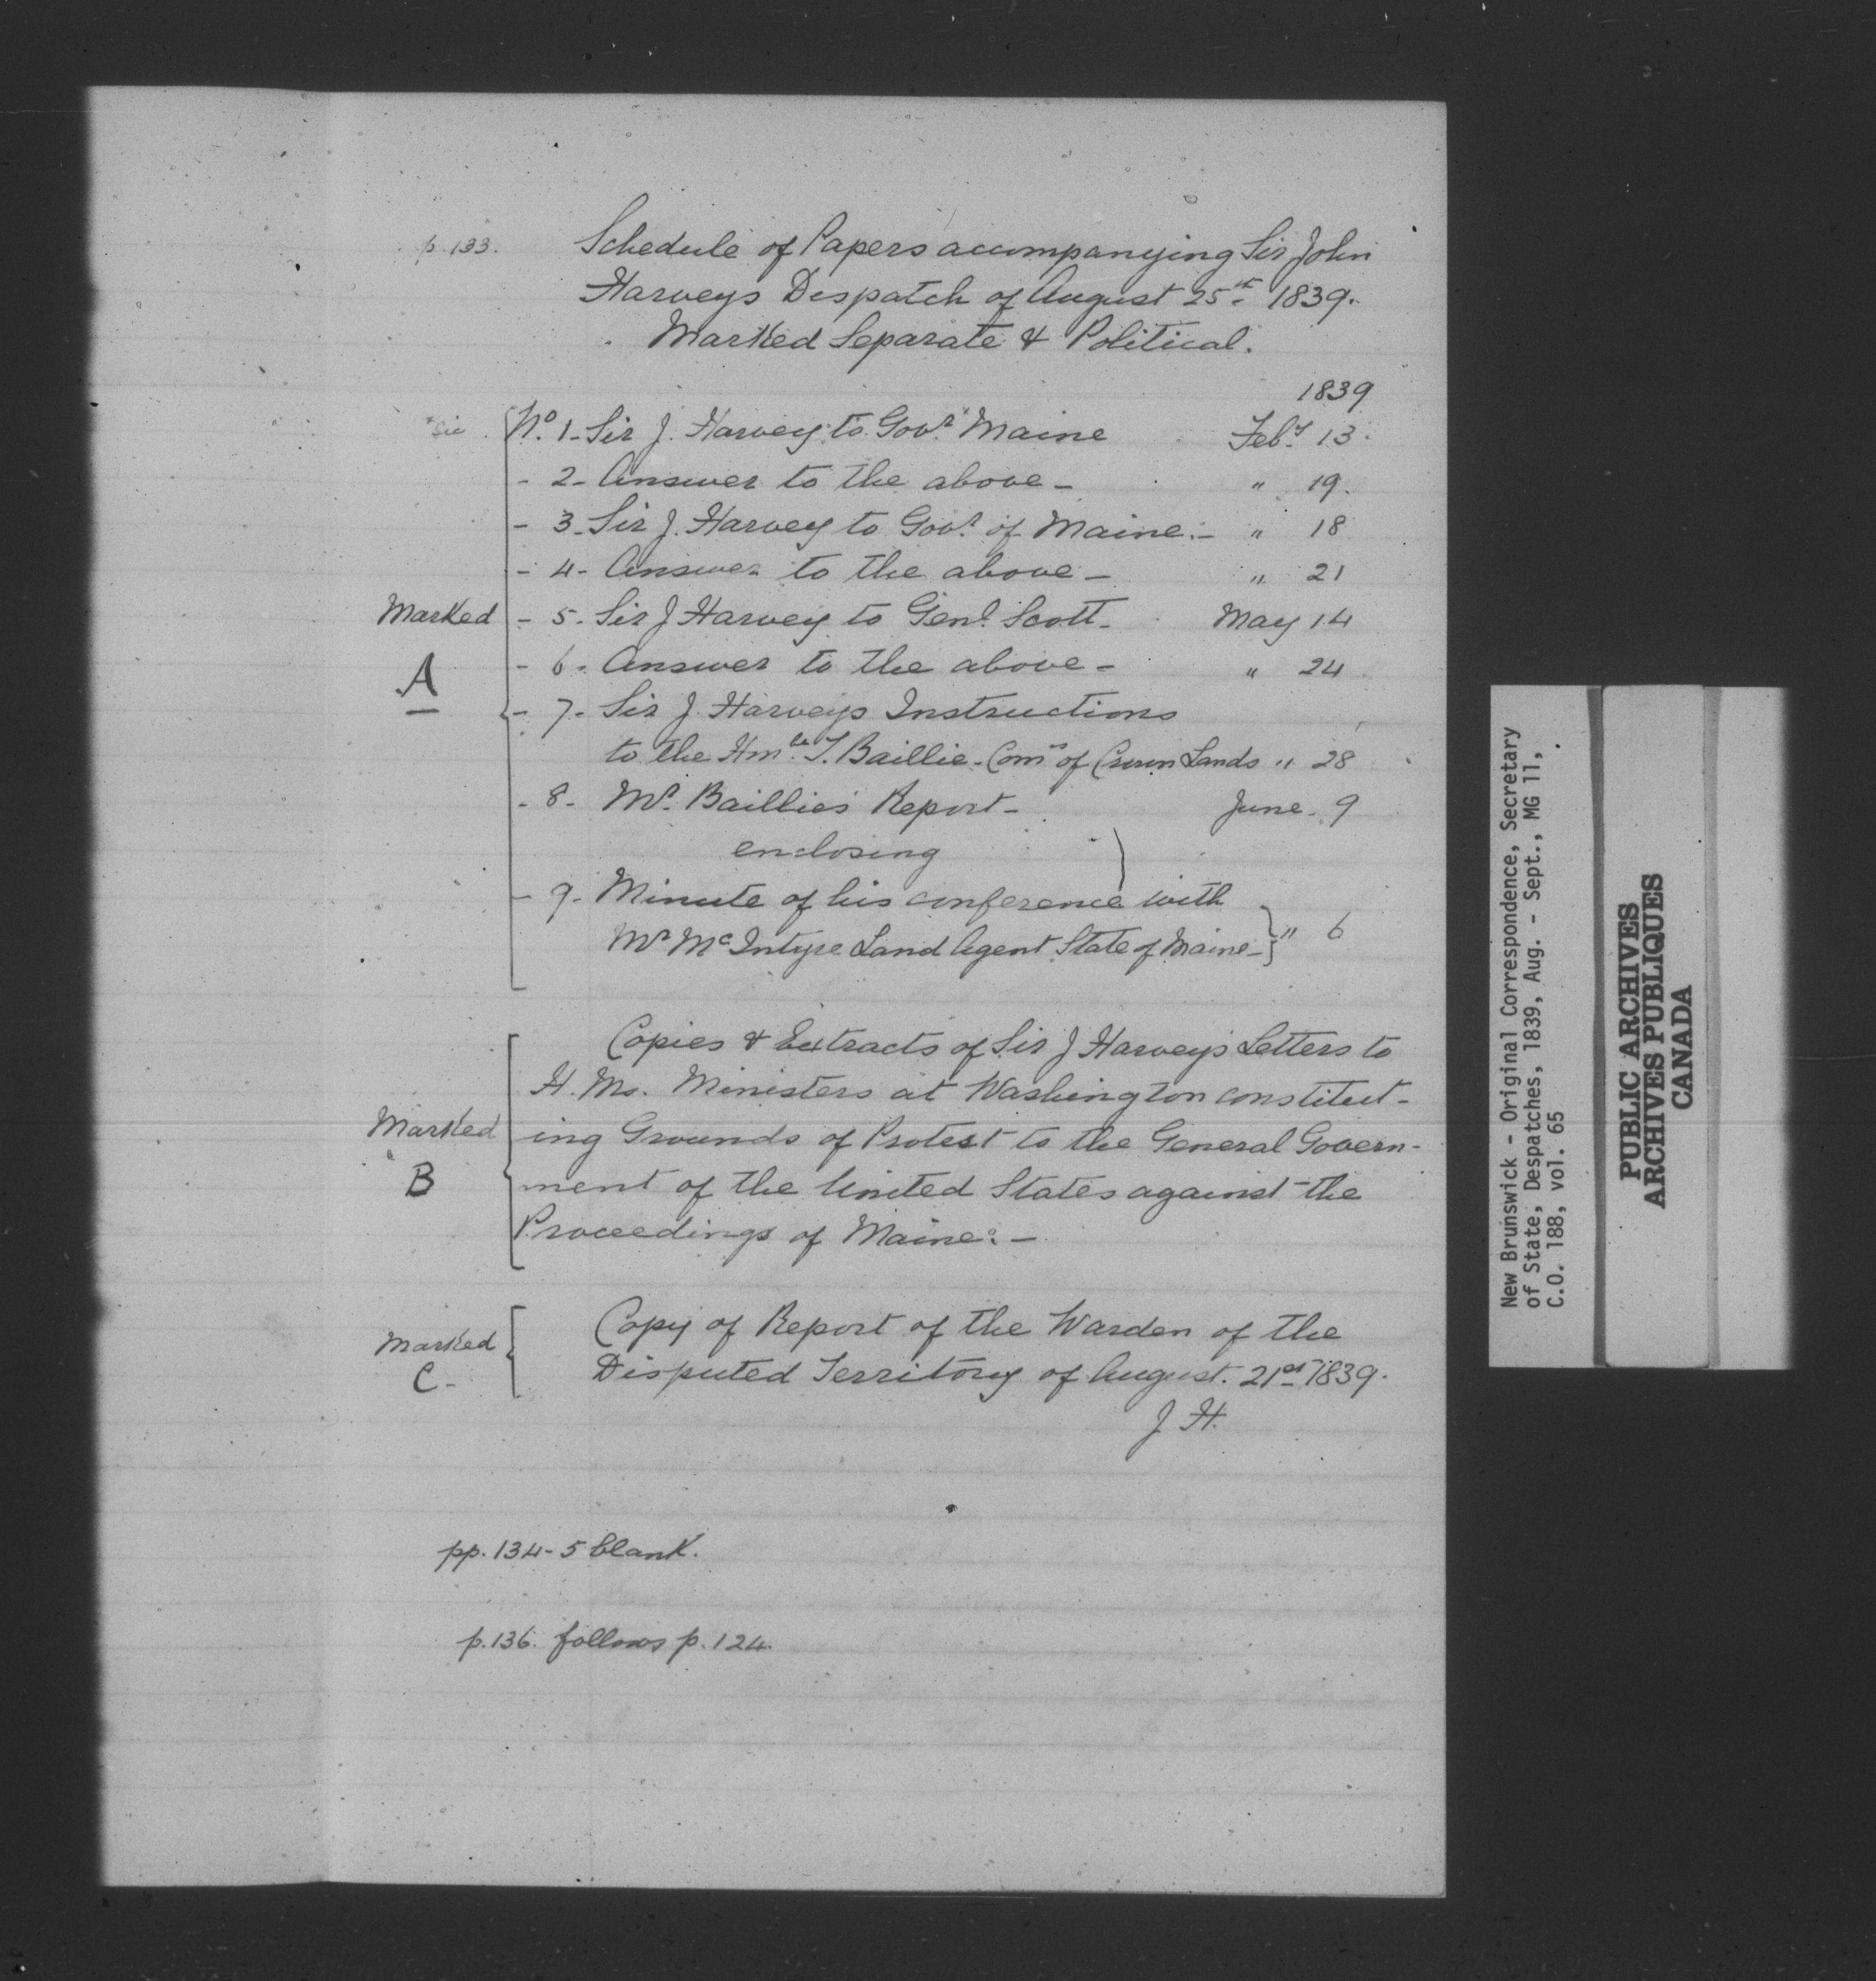 p. 133.
Schedule of Papers accompanying Sir John
Harveys Despatch of August 25th 1839.
Marked Separate & Political.
1839
*Sic
No. 1 - Sir J. Harvey to Govr Maine Feby 13.
- 2 - Answer to the above - " 19.
- 3 - Sir J. Harvey to Govr of Maine :- " 18
- 4 - Answer to the above - " 21
Marked
- 5 - Sir J Harvey to Genl Scott - May 14
- 6 - Answer to the above - " 24
A
- 7 - Sir J. Harveys Instructions
to the Hnble T. Baillie. Comr of Crown Lands " 28
- 8 - Mr. Baillies Report - June 9
enclosing
- 9 - Minute of his conference with
Mr McIntyre Land Agent State of Maine - " 6
Copies & Extracts of Sir J Harvey's Letters to
H. Ms. Ministers at Washington constitut-
Marked
ing Grounds of Protest to the General Govern-
B
ment of the United States against the
Proceedings of Maine: -
Marked
C -
Copy of Report of the Warden of the
Disputed Territory of August 21st 1839.
J H.
pp. 134-5 blank.
p. 136. follows p. 124.
New Brunswick - Original Correspondence, Secretary
of State, Despatches, 1839, Aug. - Sept., MG 11,
C.O. 188, vol. 65
PUBLIC ARCHIVES
ARCHIVES PUBLIQUES
CANADA